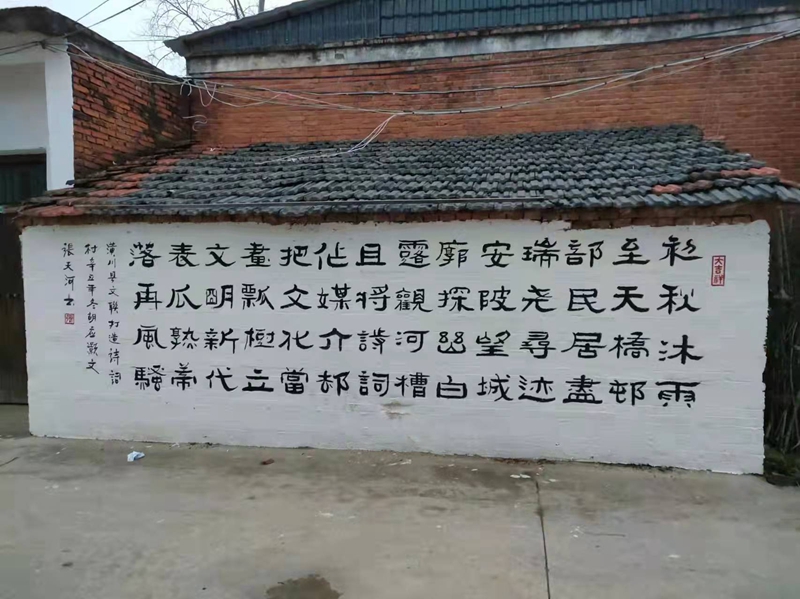 大吉祥
初秋沐雨
至天橋邨
部民居盡
瑞尧尋迹
安陂望城
廓探幽白
露觀河槽
且將詩詞
作媒介却
把文化當
畫瓢樹立
文明新代
表瓜熟帝
落再風騷
潢川县文联打造诗詞
村辛丑年冬胡应歡文
張天河书